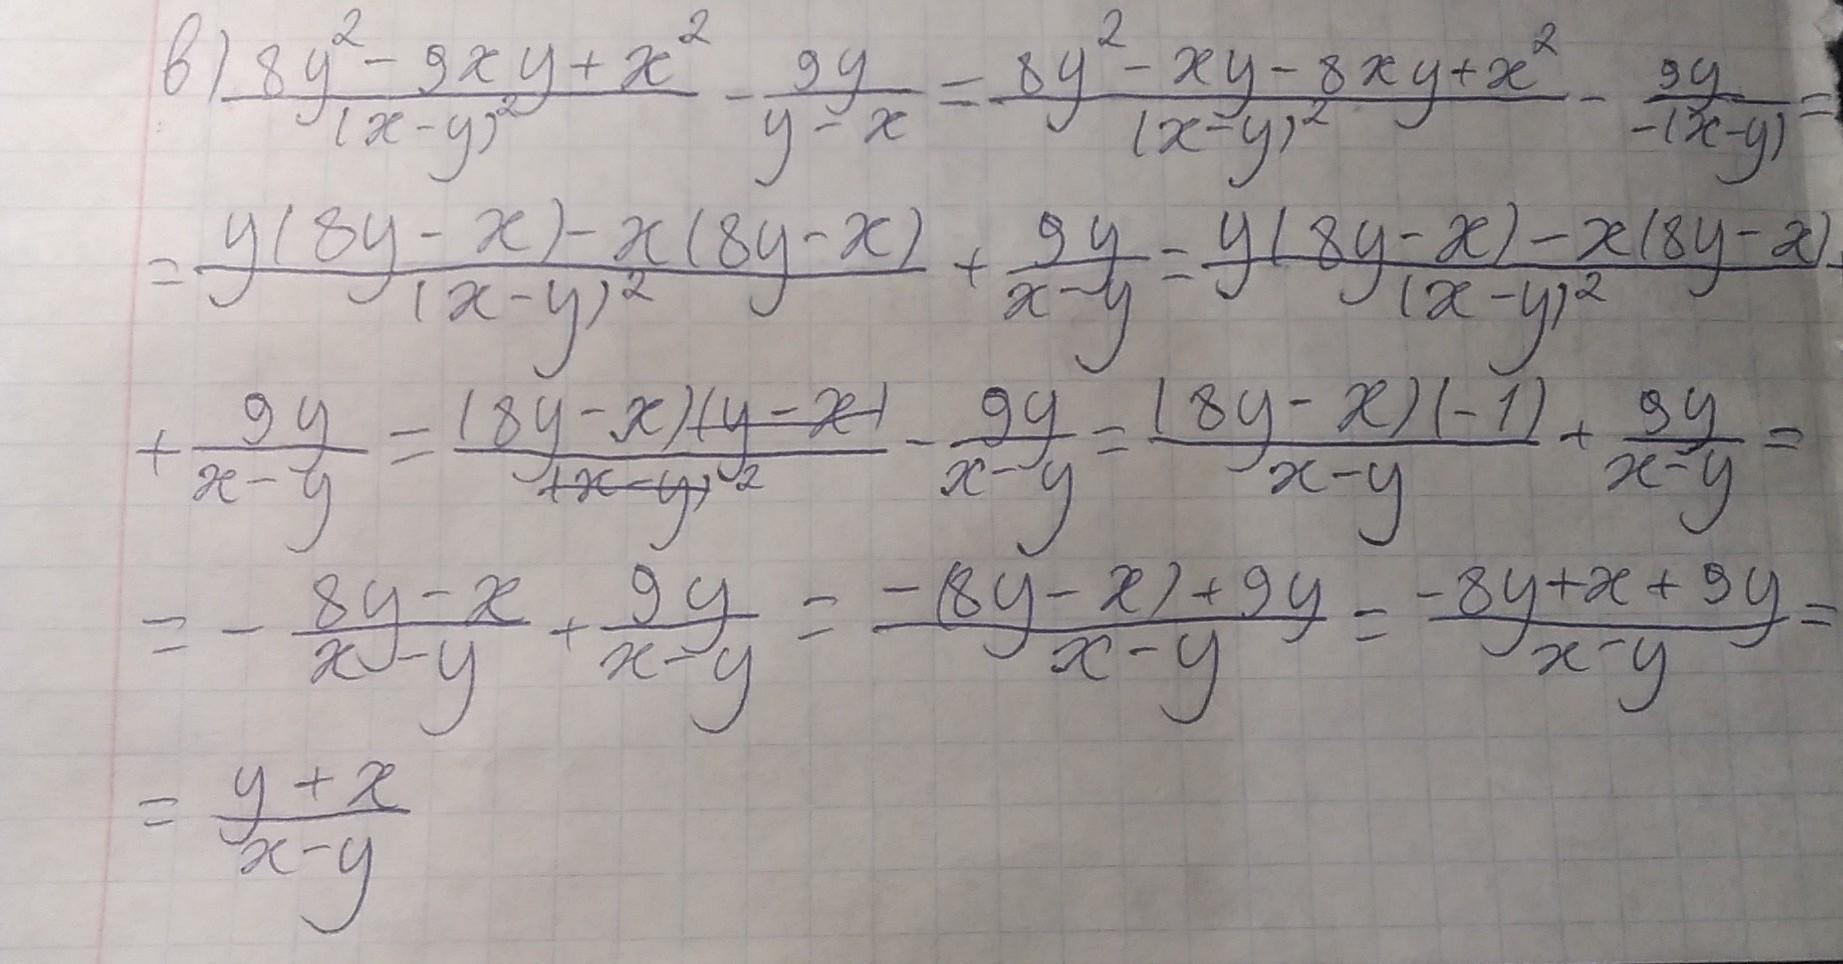 в) (8y² - 9xy + x²)/(x-y)² - 9y/(y-x) = (8y² - xy - 8xy + x²)/(x-y)² - 9y/(-(x-y)) =
= (y(8y-x) - x(8y-x))/(x-y)² + 9y/(x-y) = (y(8y-x) - x(8y-x))/(x-y)²
+ 9y/(x-y) = ((8y-x)(y-x))/(x-y)² - 9y/(x-y) = ((8y-x)(-1))/(x-y) + 9y/(x-y) =
= - (8y-x)/(x-y) + 9y/(x-y) = (-(8y-x)+9y)/(x-y) = (-8y+x+9y)/(x-y) =
= (y+x)/(x-y)